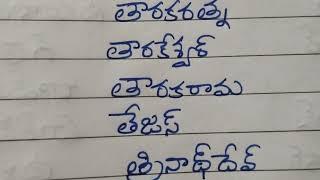 తారకరత్న
తారకేశ్వర్
తారకరామ
తేజస్
త్రినాథ్‌దేవ్